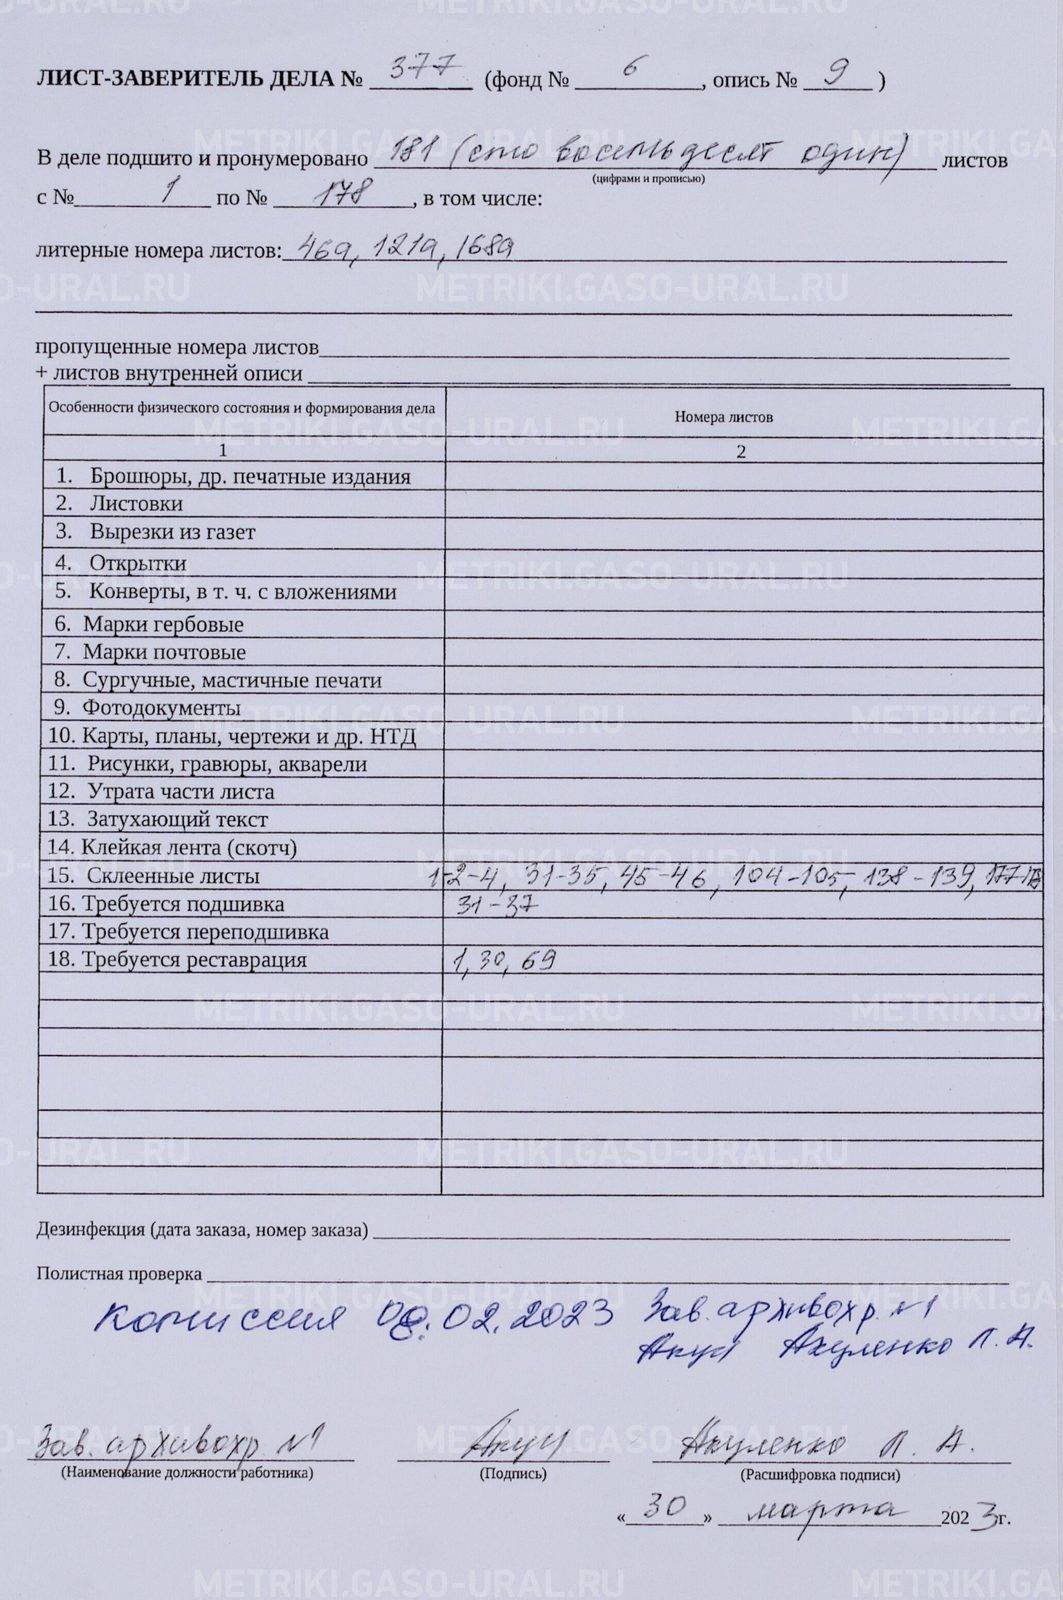 ЛИСТ-ЗАВЕРИТЕЛЬ ДЕЛА № 377 (фонд № 6, опись № 9 )
В деле подшито и пронумеровано 181 (сто восемьдесят один) листов
(цифрами и прописью)
с № 1 по № 178, в том числе:
литерные номера листов: 46а, 121а, 168а
пропущенные номера листов
+ листов внутренней описи
Особенности физического состояния и формирования дела Номера листов
1 2
1. Брошюры, др. печатные издания
2. Листовки
3. Вырезки из газет
4. Открытки
5. Конверты, в т. ч. с вложениями
6. Марки гербовые
7. Марки почтовые
8. Сургучные, мастичные печати
9. Фотодокументы
10. Карты, планы, чертежи и др. НТД
11. Рисунки, гравюры, акварели
12. Утрата части листа
13. Затухающий текст
14. Клейкая лента (скотч)
15. Склеенные листы 1-2-4, 31-35, 45-46, 104-105, 138-139, 177-178
16. Требуется подшивка 31-37
17. Требуется переподшивка
18. Требуется реставрация 1, 30, 69
Дезинфекция (дата заказа, номер заказа)
Полистная проверка
Комиссия 08.02.2023 Зав. архивохр. №1
Акул Акуленко Л. А.
Зав. архивохр. №1 Акул Акуленко Л. А.
(Наименование должности работника) (Подпись) (Расшифровка подписи)
«30» марта 2023г.
METRIKI.GASO-URAL.RU